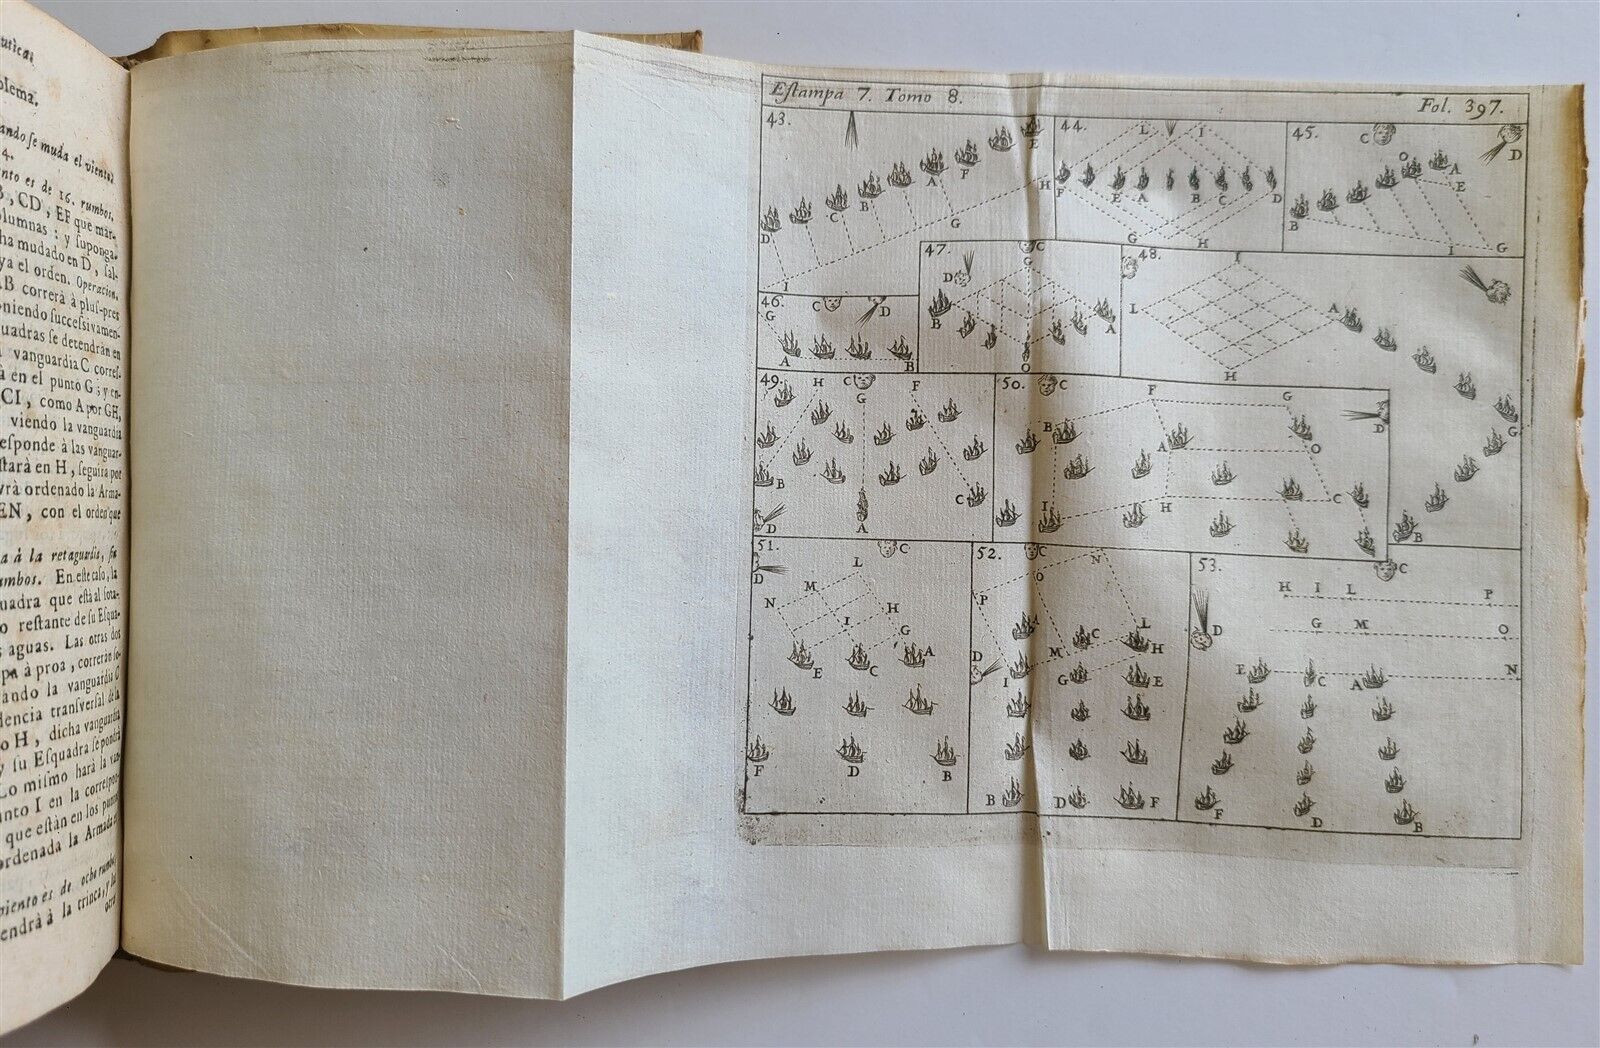 utica.
blema.
ando ſe muda el viento
4.
nto es de 16. rumbos.
B, CD, EF que mar-
olumnas ; y ſuponga-
ha mudado en D, ſal-
ya el orden. Operacion.
AB correrà à pluſ-pres
oniendo ſucceſſivamen-
uadras ſe detendràn en
vanguardia C correſ-
à en el punto G ; y en-
CI, como A por GH,
viendo la vanguardia
reſponde à las vanguar-
ſtarà en H, ſeguirà por
vrà ordenado la Arma-
EN, con el orden que
a à la retaguardia, ſin
umbos. En eſte caſo, la
uadra que eſtà al ſota-
o reſtante de ſu Eſqua-
s aguas. Las otras dos
pa à proa, correràn ſo-
ando la vanguardia C
dencia tranſverſal de la
o H, dicha vanguardia
y ſu Eſquadra ſe pondrà
Lo miſmo harà la van-
unto I en la correſpon-
que eſtàn en los puntos
ordenada la Armada en
viento es de ocho rumbos,
endrà à la trinca, y la
otra
Eſtampa 7. Tomo 8.
Fol. 397.
43.
E
F
A
B
C
D
G
H
I
44.
L I
F E A B C D
G H
45.
C D
O A
E
B
I G
46.
C D
G
A B
47.
C
G
D
B A
O
48.
I
L A
H
G
B
49.
H C F
G
B
C
D A
50.
C
F G
B D
A O
I H C
51.
C
D
L
M
N H
I G
E C A
F D B
52.
C
N
O
P
A C L
D M H
I G E
B D F
53.
C
H I L P
D G M O
E C A N
F D B